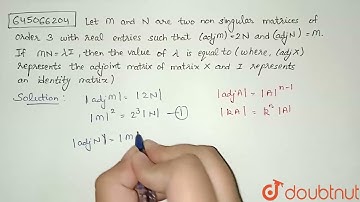 645066204
Let M and N are two non singular matrices of
order 3 with real entries such that (adjM)=2N and (adjN)=M.
If MN=λI, then the value of λ is equal to (where, (adjX)
represents the adjoint matrix of matrix X and I represents
an identity matrix)
Solution: |adjM| = |2N|
|adjA| = |A|ⁿ⁻¹
|M|² = 2³|N| —①
|kA| = kⁿ|A|
|adjN| = |M|
doubtnut